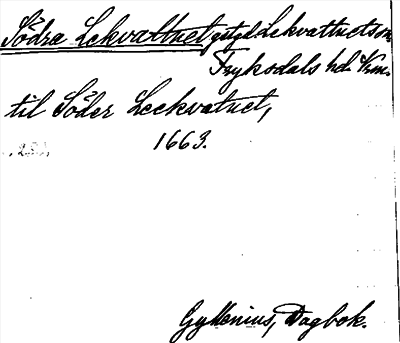 Södra Lekvattnet gstgd Lekvattnets sn
Fryksdals hd Vrm.
til Söder Leckvatnet,
1663.
Gyllenius, Dagbok.